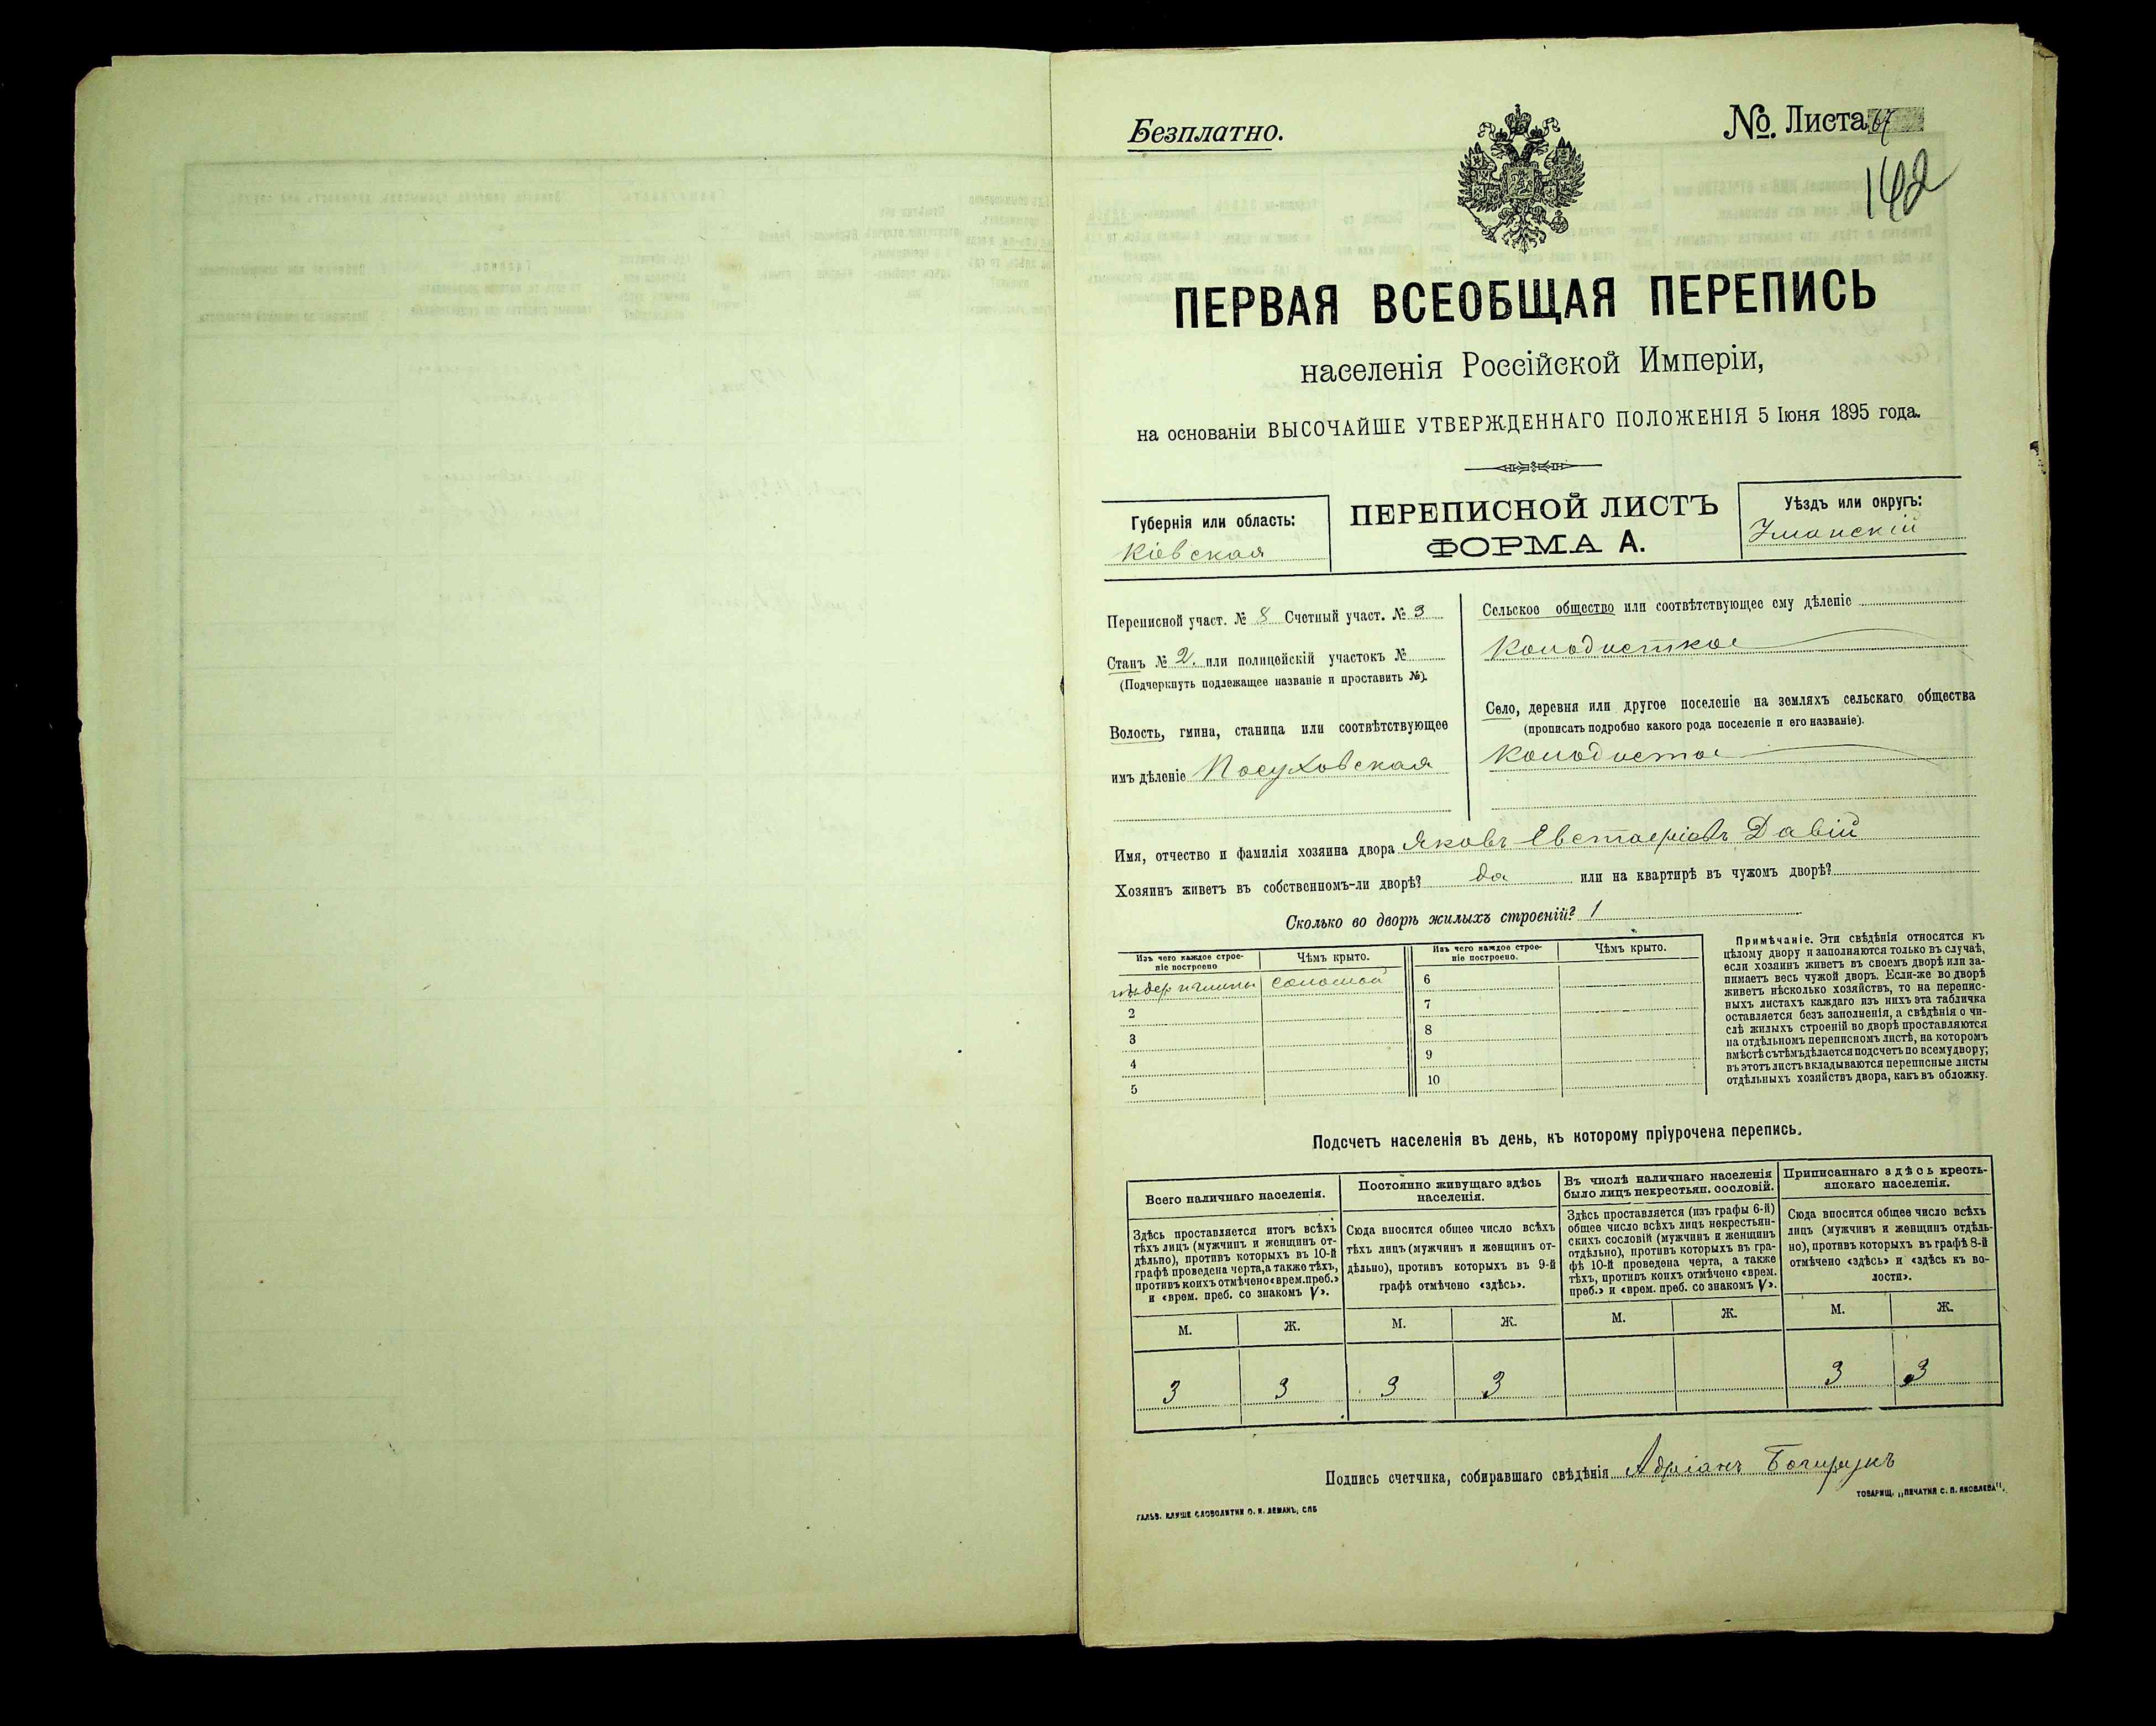 Безплатно.
№ Листа 67
142
ПЕРВАЯ ВСЕОБЩАЯ ПЕРЕПИСЬ
населенія Россійской Имперіи,
на основаніи ВЫСОЧАЙШЕ УТВЕРЖДЕННАГО ПОЛОЖЕНІЯ 5 Іюня 1895 года.
Губернія или область:
Кіевская
ПЕРЕПИСНОЙ ЛИСТЪ
ФОРМА А.
Уѣздъ или округъ:
Уманскій
Переписной участ. № 8 Счетный участ. № 3
Станъ № 2. или полицейскій участокъ №
(Подчеркнуть подлежащее названіе и проставить №).
Волость, гмина, станица или соотвѣтствующее
имъ дѣленіе Посуховская
Сельское общество или соотвѣтствующее ему дѣленіе
Колодисткое
Село, деревня или другое поселеніе на земляхъ сельскаго общества
(прописать подробно какого рода поселеніе и его названіе).
Колодистое
Имя, отчество и фамилія хозяина двора Яковъ Евстафіевъ Давій
Хозяинъ живетъ въ собственномъ-ли дворѣ? да или на квартирѣ въ чужомъ дворѣ?
Сколько во дворѣ жилыхъ строеній? 1
Изъ чего каждое строе-
ніе построено
Чѣмъ крыто.
Изъ чего каждое строе-
ніе построено.
Чѣмъ крыто.
изъ дер. и глины соломой 6
2 7
3 8
4 9
5 10
Примѣчаніе. Эти свѣдѣнія относятся къ
цѣлому двору и заполняются только въ случаѣ,
если хозяинъ живетъ въ своемъ дворѣ или за-
нимаетъ весь чужой дворъ. Если-же во дворѣ
живетъ нѣсколько хозяйствъ, то на перепис-
ныхъ листахъ каждаго изъ нихъ эта табличка
оставляется безъ заполненія, а свѣдѣнія о чи-
слѣ жилыхъ строеній во дворѣ проставляются
на отдѣльномъ переписномъ листѣ, на которомъ
вмѣстѣ съ тѣмъ дѣлается подсчетъ по всему двору;
въ этотъ листъ вкладываются переписные листы
отдѣльныхъ хозяйствъ двора, какъ въ обложку.
Подсчетъ населенія въ день, къ которому пріурочена перепись.
Всего наличнаго населенія.
Здѣсь проставляется итогъ всѣхъ
тѣхъ лицъ (мужчинъ и женщинъ от-
дѣльно), противъ которыхъ въ 10-й
графѣ проведена черта, а также тѣхъ,
противъ коихъ отмѣчено «врем. преб.»
и «врем. преб. со знакомъ V».
Постоянно живущаго здѣсь
населенія.
Сюда вносится общее число всѣхъ
тѣхъ лицъ (мужчинъ и женщинъ от-
дѣльно), противъ которыхъ въ 9-й
графѣ отмѣчено «здѣсь».
Въ числѣ наличнаго населенія
было лицъ некрестьян. сословій.
Здѣсь проставляется (изъ графы 6-й)
общее число всѣхъ лицъ некрестьян-
скихъ сословій (мужчинъ и женщинъ
отдѣльно), противъ которыхъ въ гра-
фѣ 10-й проведена черта, а также
тѣхъ, противъ коихъ отмѣчено «врем.
преб.» и «врем. преб. со знакомъ V».
Приписаннаго здѣсь кресть-
янскаго населенія.
Сюда вносится общее число всѣхъ
лицъ (мужчинъ и женщинъ отдѣль-
но), противъ которыхъ въ графѣ 8-й
отмѣчено «здѣсь» и «здѣсь къ во-
лости».
М. Ж. М. Ж. М. Ж. М. Ж.
3 3 3 3 3 3
Подпись счетчика, собиравшаго свѣдѣнія Адріанъ
ГАЛЬВ. КЛИШЕ СЛОВОЛИТНИ О. И. ЛЕМАНЪ, СПБ
ТОВАРИЩ. „ПЕЧАТНЯ С. П. ЯКОВЛЕВА".